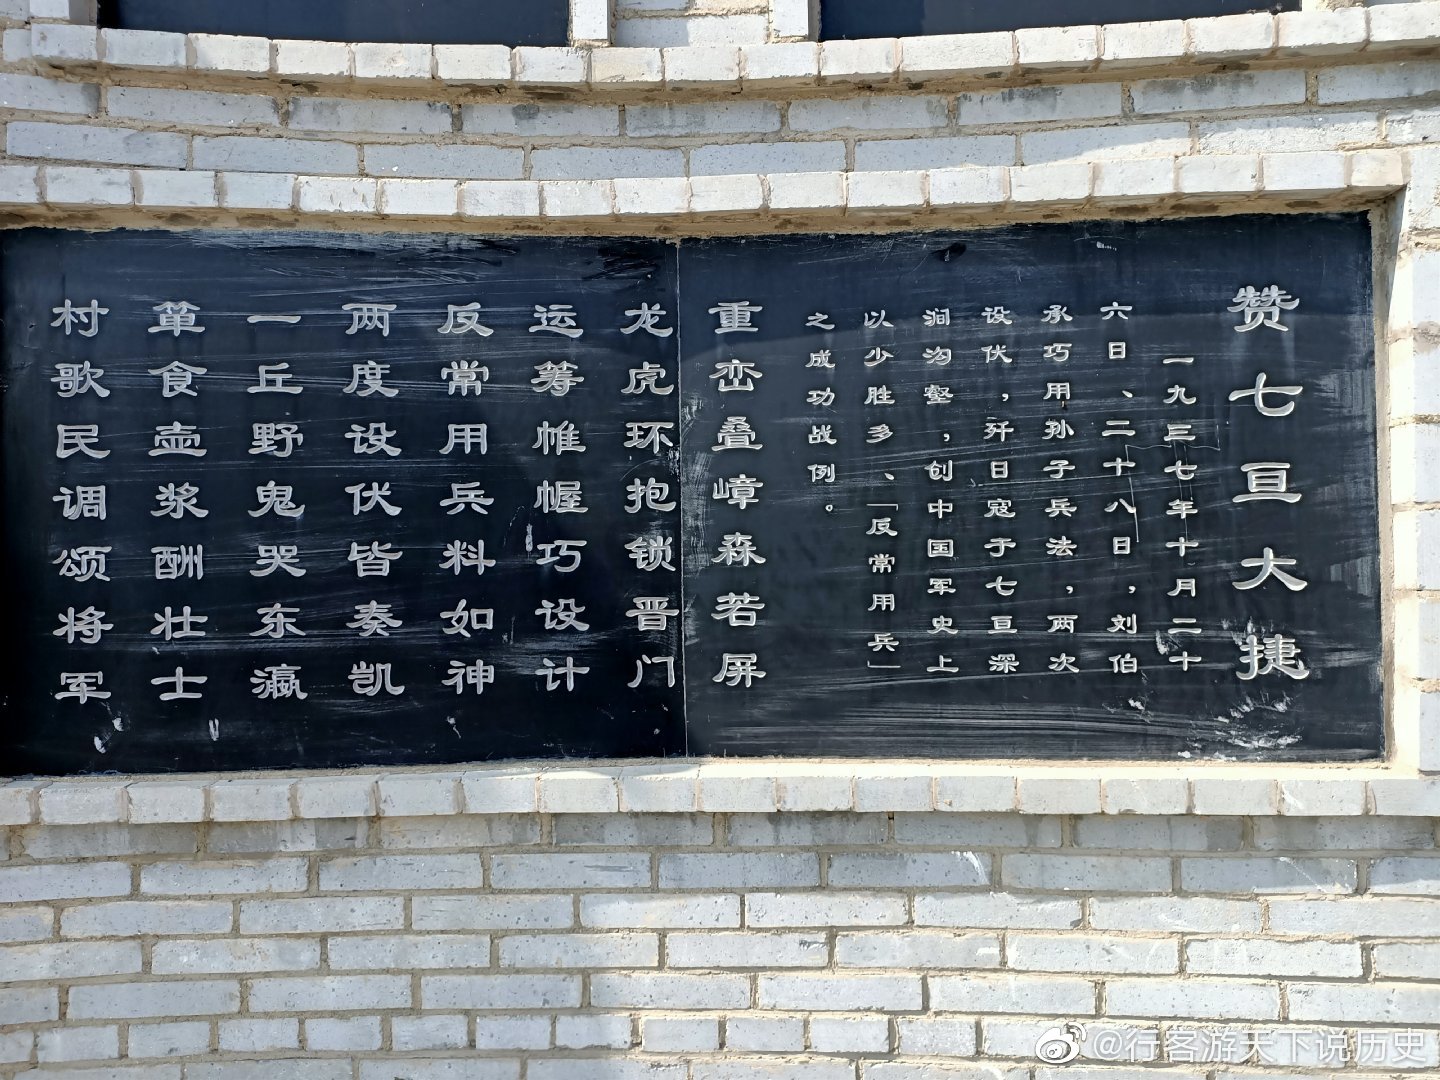 赞七亘大捷
一九三七年十月二十
六日、二十八日,刘伯
承巧用孙子兵法,两次
设伏,歼日寇于七亘深
涧沟壑,创中国军史上
以少胜多、「反常用兵」
之成功战例。
重峦叠嶂森若屏
龙虎环抱锁晋门
运筹帷幄巧设计
反常用兵料如神
两度设伏皆奏凯
一丘野鬼哭东瀛
箪食壶浆酬壮士
村歌民调颂将军
@行客游天下说历史